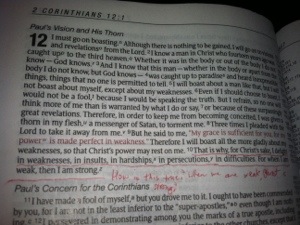 2 CORINTHIANS 12:1
Paul's Vision and His Thorn
12 I must go on boasting. Although there is nothing to be gained, I will go on to visions
and revelations from the Lord. 2 I know a man in Christ who fourteen years ago was
caught up to the third heaven. Whether it was in the body or out of the body I do not
know—God knows. 3 And I know that this man—whether in the body or apart from the
body I do not know, but God knows— 4 was caught up to paradise and heard inexpressible
things, things that no one is permitted to tell. 5 I will boast about a man like that, but I will
not boast about myself, except about my weaknesses. 6 Even if I should choose to boast, I
would not be a fool, because I would be speaking the truth. But I refrain, so no one will
think more of me than is warranted by what I do or say, 7 or because of these surpassingly
great revelations. Therefore, in order to keep me from becoming conceited, I was given a
thorn in my flesh, a messenger of Satan, to torment me. 8 Three times I pleaded with the
Lord to take it away from me. 9 But he said to me, "My grace is sufficient for you, for my
power is made perfect in weakness." Therefore I will boast all the more gladly about my
weaknesses, so that Christ's power may rest on me. 10 That is why, for Christ's sake, I delight
in weaknesses, in insults, in hardships, in persecutions, in difficulties. For when I am
weak, then I am strong.
How is this when we are weak
strong?
Paul's Concern for the Corinthians
11 I have made a fool of myself, but you drove me to it. I ought to have been commended
by you, for I am not in the least inferior to the "super-apostles," even though I am nothing.
12 I persevered in demonstrating among you the marks of a true apostle, including
to the other churches, except that